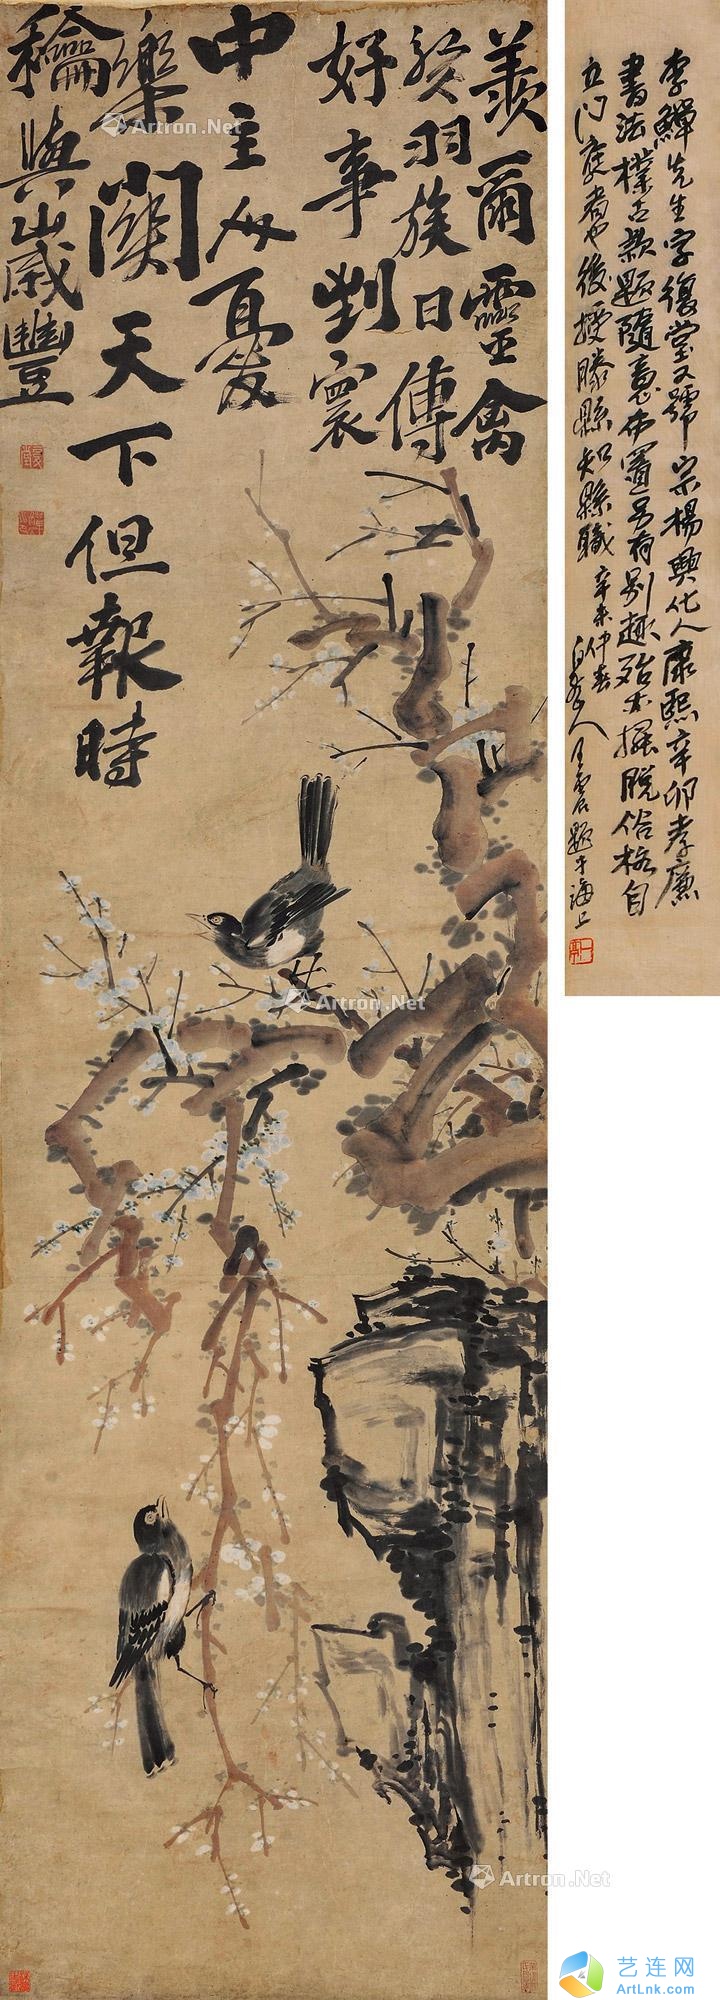 羨爾靈禽
於羽族日傳
好事對寰
中主人憂
樂關天下但報時
龢與歲豐
李鱓先生字復堂又號宗楊興化人康熙辛卯孝廉
書法樸古款題隨意布置另有別趣殆亦擺脫俗格自
立門庭者也後授滕縣知縣職 辛未仲春
白龍山人王震題于海上
Artron.Net
Artron.Net
Artron.Net
Artron.Net
Artron.Net
艺连网
ArtLnk.com